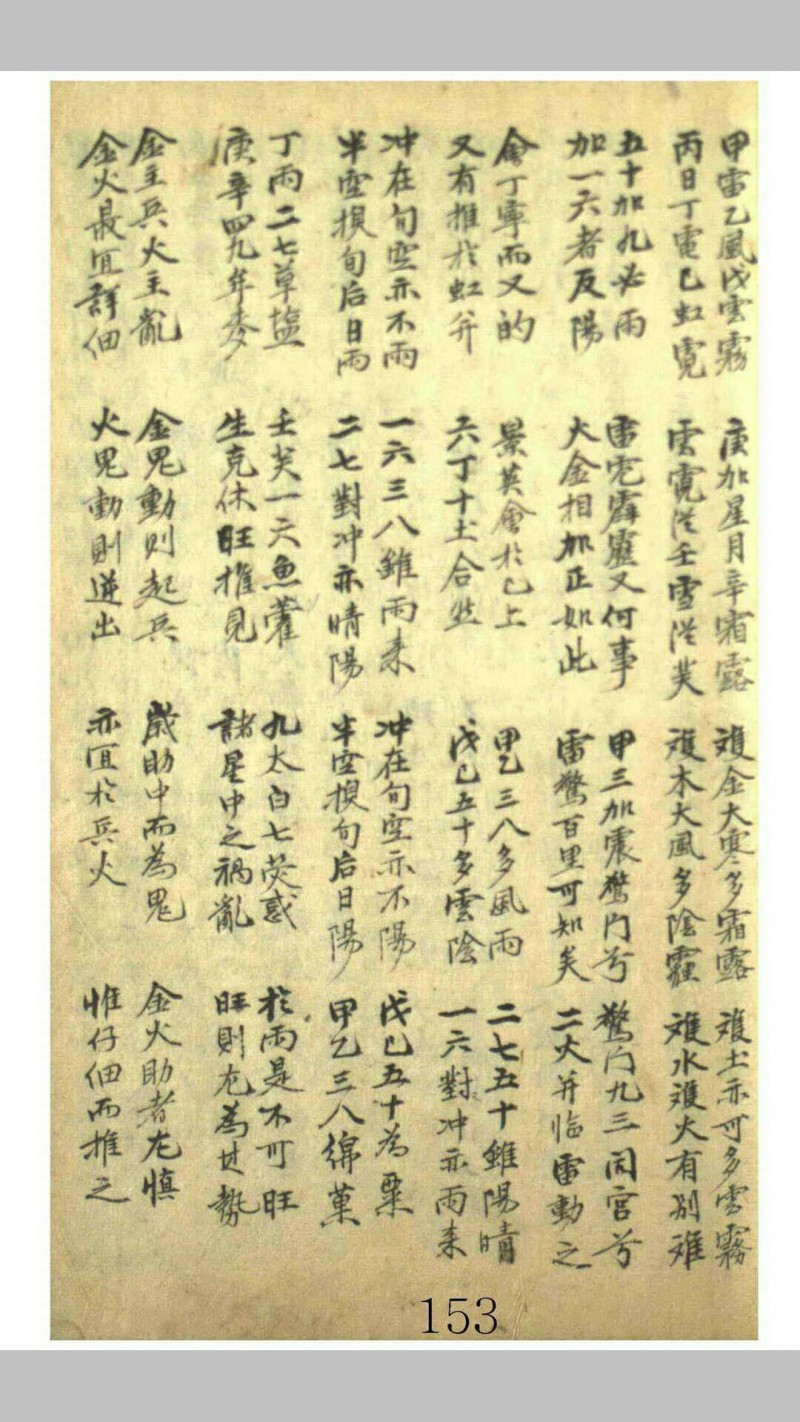 甲雷乙風戊雲霧
丙日丁電己虹霓
庚加星月辛霜露
雲霓從壬雪從癸
艰金大寒多霜露
艰木大風多陰霾
艰土亦可多雲霧
艰水艰火有别难
五十加九必雨
加一六者反陽
雷電霹靂又何事
火金相加正如此
甲三加震驚门兮
雷驚百里可知矣
驚门九三同宫兮
二火并临雷動之
會丁寧而又的
又有推於虹并
景英會於己上
六丁十土合些
甲乙三八多風雨
戊己五十多雲陰
二七五十雖陽晴
一六對冲亦雨来
冲在旬空亦不雨
半空換旬后日雨
一六三八雖雨来
二七對冲亦晴陽
冲在旬空亦不陽
半空換旬后日陽
戊己五十為粟
甲乙三八綿菓
丁丙二七草塩
庚辛四九年麥
壬癸一六魚藿
生克休旺推見
九太白七熒惑
諸星中之禍亂
於兩是不可旺
旺則尤為其勢
金主兵火主亂
金火最宜詳细
金鬼動則起兵
火鬼動則逆出
歲助中而為鬼
亦宜於兵火
金火助者尤慎
惟仔细而推之
153